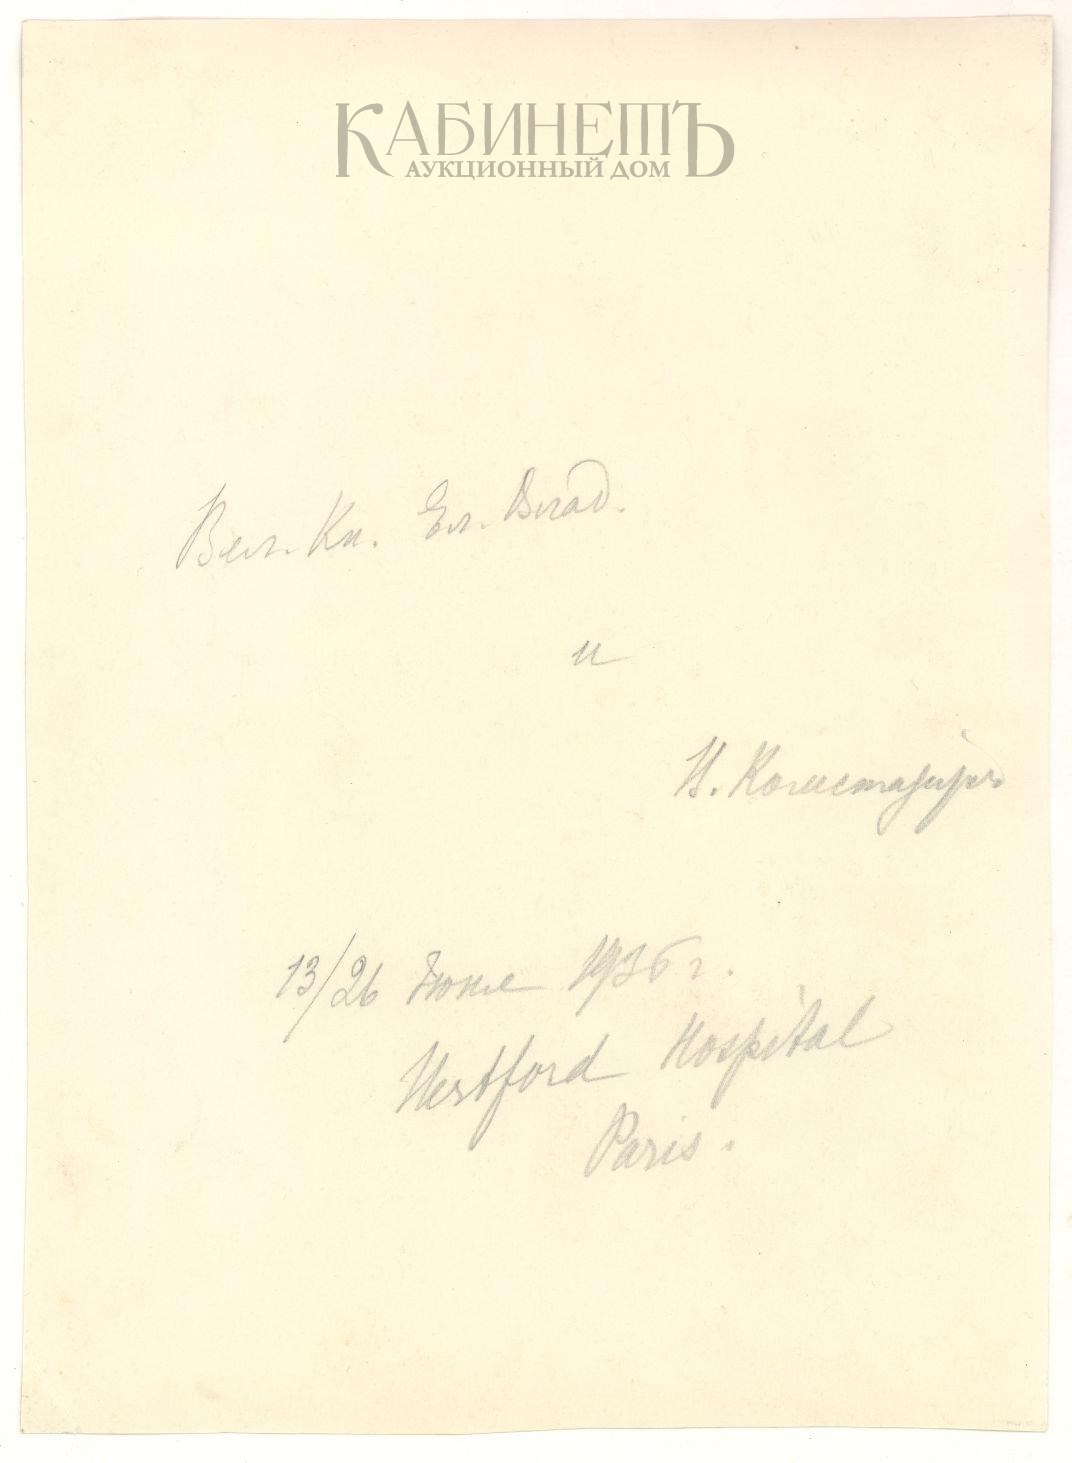 КАБИНЕТЪ
АУКЦИОННЫЙ ДОМ
Вел. Кн. Ел. Влад.
и
Н.
13/26 Июня 1936 г.
Hertford Hospital
Paris.